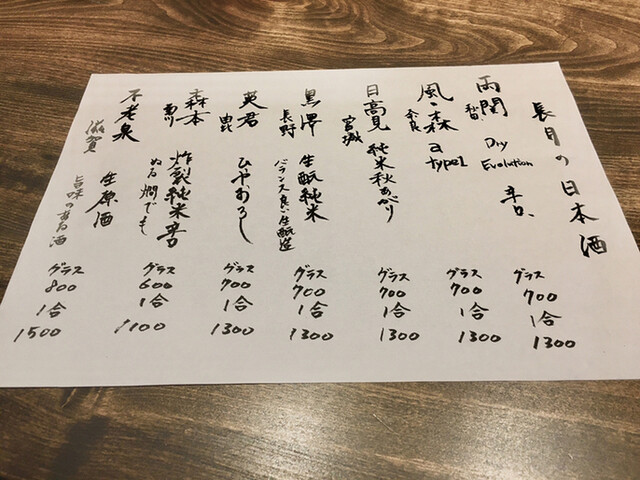 長月の日本酒
両関
秋田
Dry
Evolution
辛口、
グラス
700
1合
1300
風の森
奈良
a
type1
グラス
700
1合
1300
日高見
宮城
純米秋あがり
グラス
700
1合
1300
黒澤
長野
生酛純米
バランス良い生酛造
グラス
700
1合
1300
英君
ひやおろし
グラス
700
1合
1300
森本
炸裂純米辛口
ぬる燗でも
グラス
600
1合
1100
不老泉
滋賀
生原酒
旨味のある酒
グラス
800
1合
1500